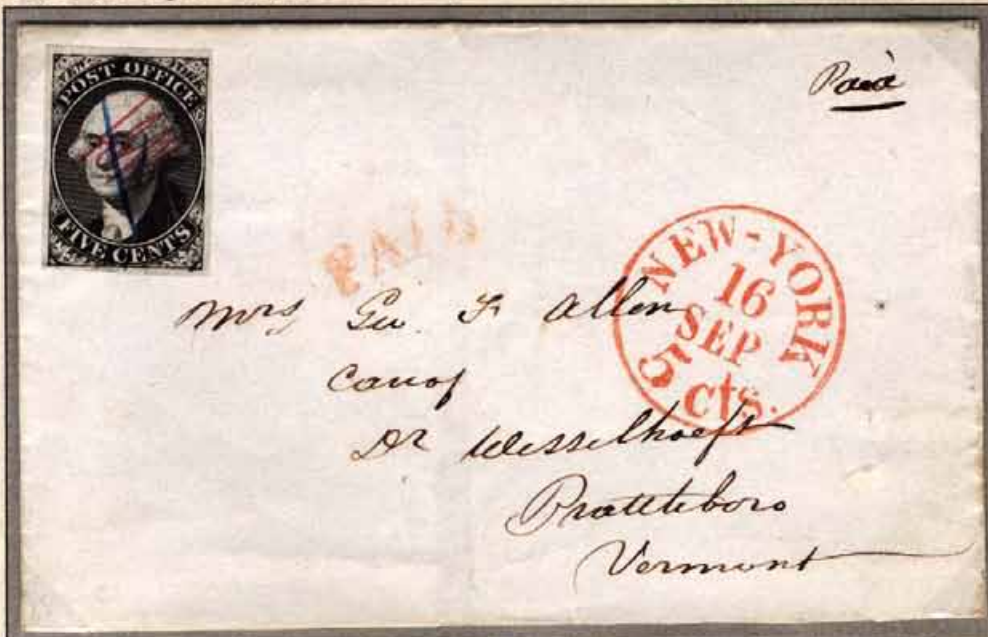 POST OFFICE
FIVE CENTS
Paid
PAID
NEW-YORK
16
SEP
5 cts.
Mrs Geo. F. Allen
Care of
Dr Wesselhoeft
Brattleboro
Vermont